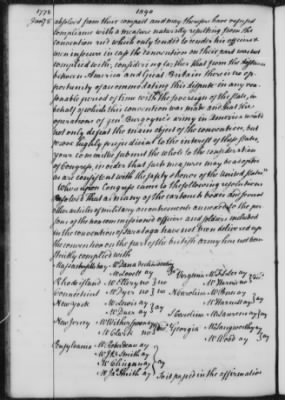 1778 1040
Jany 8 absolved from their compact and may therefore have refused
compliance with a measure naturally resulting from the
convention and which only tended to render his officers &
men insecure in case the convention on their part was not
complied with, considering farther that from the distance
between America and Great Britain there is no op-
portunity of accommodating this dispute in any rea-
sonable period of time with the sovereign of the state, in
behalf of which this convention was made and that the
operations of genl Burgoyne's army in America would
not only defeat the main object of the convention, but
prove highly prejudicial to the interest of these States,
your committee submit the whole to the consideration
of Congress, in order that such measures may be adopted
as are consistent with the safety & honor of the United States"
Whereupon Congress came to the following resolutions
Resolved that as many of the cartouch boxes and several
other articles of military accoutrements annexed to the per-
sons of the non commissioned officers and soldiers included
in the convention of Saratoga have not been delivered up
the convention on the part of the british army has not been
strictly complied with
Massachusetts bay Mr Dana
Mr Lovell ay
Rhode island Mr Ellery no no
Connecticut Mr Dyer no no
New york Mr Lewis ay
Mr Duer ay ay
New Jersey Mr Witherspoon ay
Mr Clark no
Pensylvania Mr Roberdeau ay
Mr J B Smith ay
Mr Clingan ay
Mr Js Smith ay ay
Virginia Mr F L Lee ay
Mr Harvie no
N Carolina Mr Penn ay
Mr Harnett ay ay
S Carolina Mr Laurens ay ay
Georgia Mr Langworthy ay
Mr Wood ay ay
So it passed in the affirmative